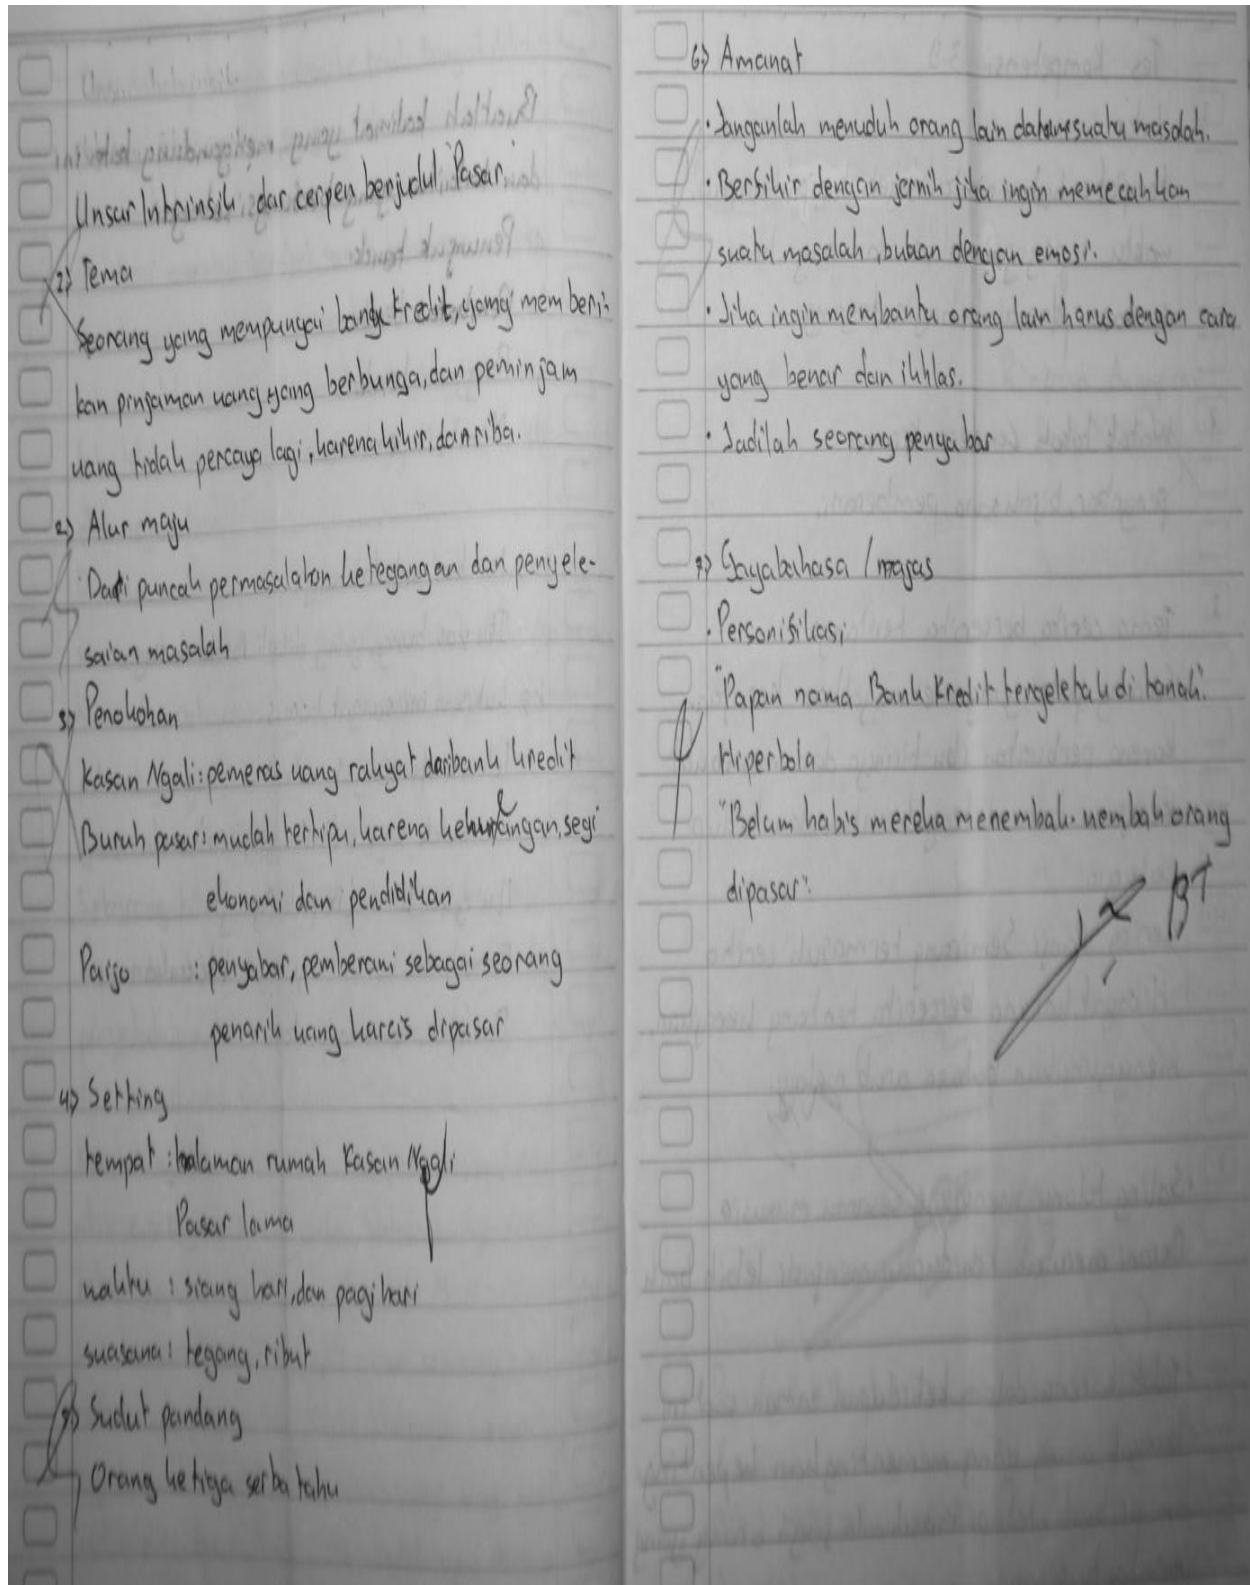 Unsur Intrinsik, dar cerpen berjudul "Pasar"
1) Tema
Seorang yang mempunyai bank kredit, yang memberi-
kan pinjaman uang yang berbunga, dan peminjam
uang tidak percaya lagi, karena kikir, dan riba.
2) Alur maju
Dari puncak permasalahan ketegangan dan penyele-
saian masalah
3) Penokohan
Kasan Ngali : pemeras uang rakyat dari bank kredit
Buruh pasar : mudah tertipu, karena kekurangan, segi
ekonomi dan pendidikan
Paijo : penyabar, pemberani sebagai seorang
penarik uang karcis dipasar
4) Setting
tempat : halaman rumah Kasan Ngali
Pasar lama
waktu : siang hari, dan pagi hari
suasana : tegang, ribut
5) Sudut pandang
Orang ketiga serba tahu
6) Amanat
• Janganlah menuduh orang lain dalam suatu masalah.
• Berfikir dengan jernih jika ingin memecahkan
suatu masalah, bukan dengan emosi.
• Jika ingin membantu orang lain harus dengan cara
yang benar dan ikhlas.
• Jadilah seorang penyabar
7) Gayabahasa / majas
• Personifikasi
"Papan nama Bank Kredit tergeletak di tanah".
Hiperbola
"Belum habis mereka menembak-nembak orang
dipasar".